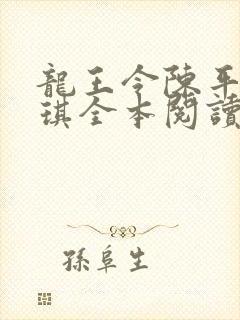 龍王令陳平
琪全本閱讀
孫阜生